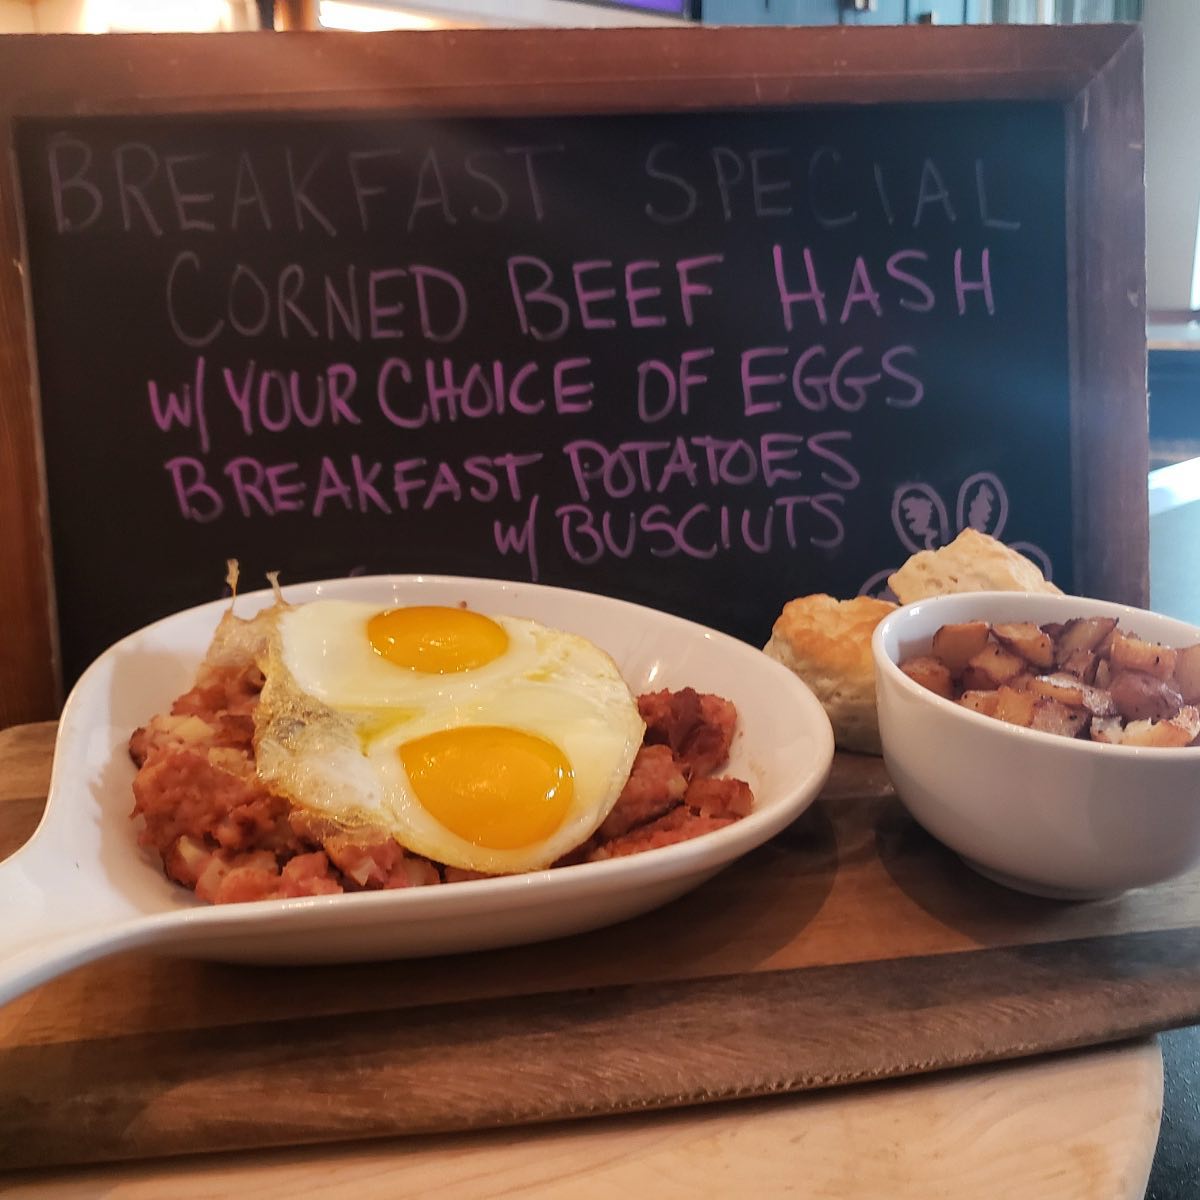 BREAKFAST SPECIAL
CORNED BEEF HASH
W/ YOUR CHOICE OF EGGS
BREAKFAST POTATOES
W/ BUSCIUTS